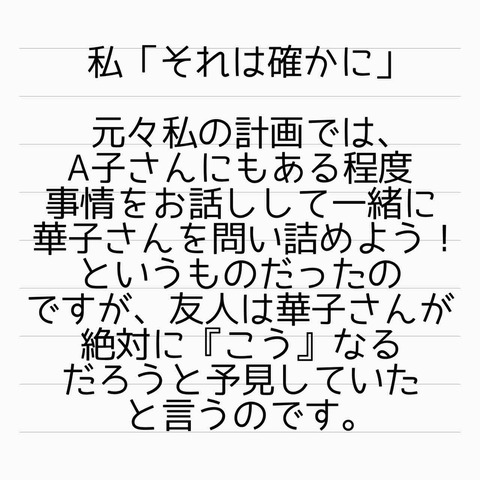 私「それは確かに」
元々私の計画では、
A子さんにもある程度
事情をお話しして一緒に
華子さんを問い詰めよう！
というものだったの
ですが、友人は華子さんが
絶対に『こう』なる
だろうと予見していた
と言うのです。